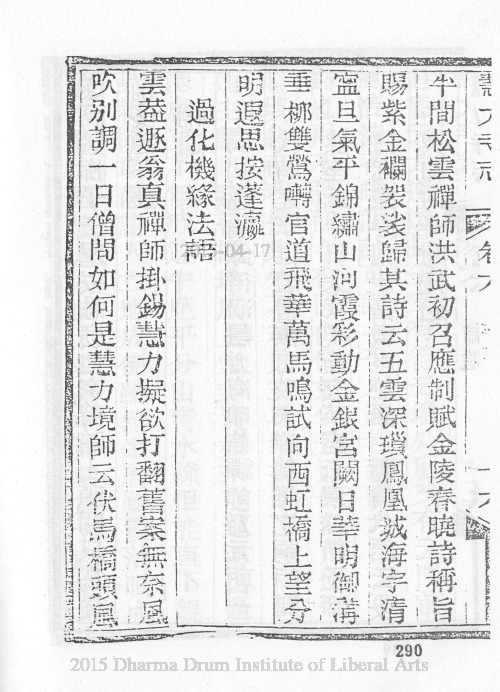 慧力寺志 卷六 十六
半間松雲禪師洪武初召應制賦金陵春曉詩稱旨
賜紫金襴袈裟歸其詩云五雲深瑣鳳凰城海宇清
寍旦氣平錦繡山河霞彩動金銀宮闕日華明御溝
垂柳雙鶯囀官道飛華萬馬鳴試向西虹橋上望分
明遐思按蓬瀛
過化機緣法語
雲菴遯翁真禪師掛錫慧力擬欲打翻舊案無奈風
吹別調一日僧問如何是慧力境師云伏馬橋頭風
290
2015 Dharma Drum Institute of Liberal Arts